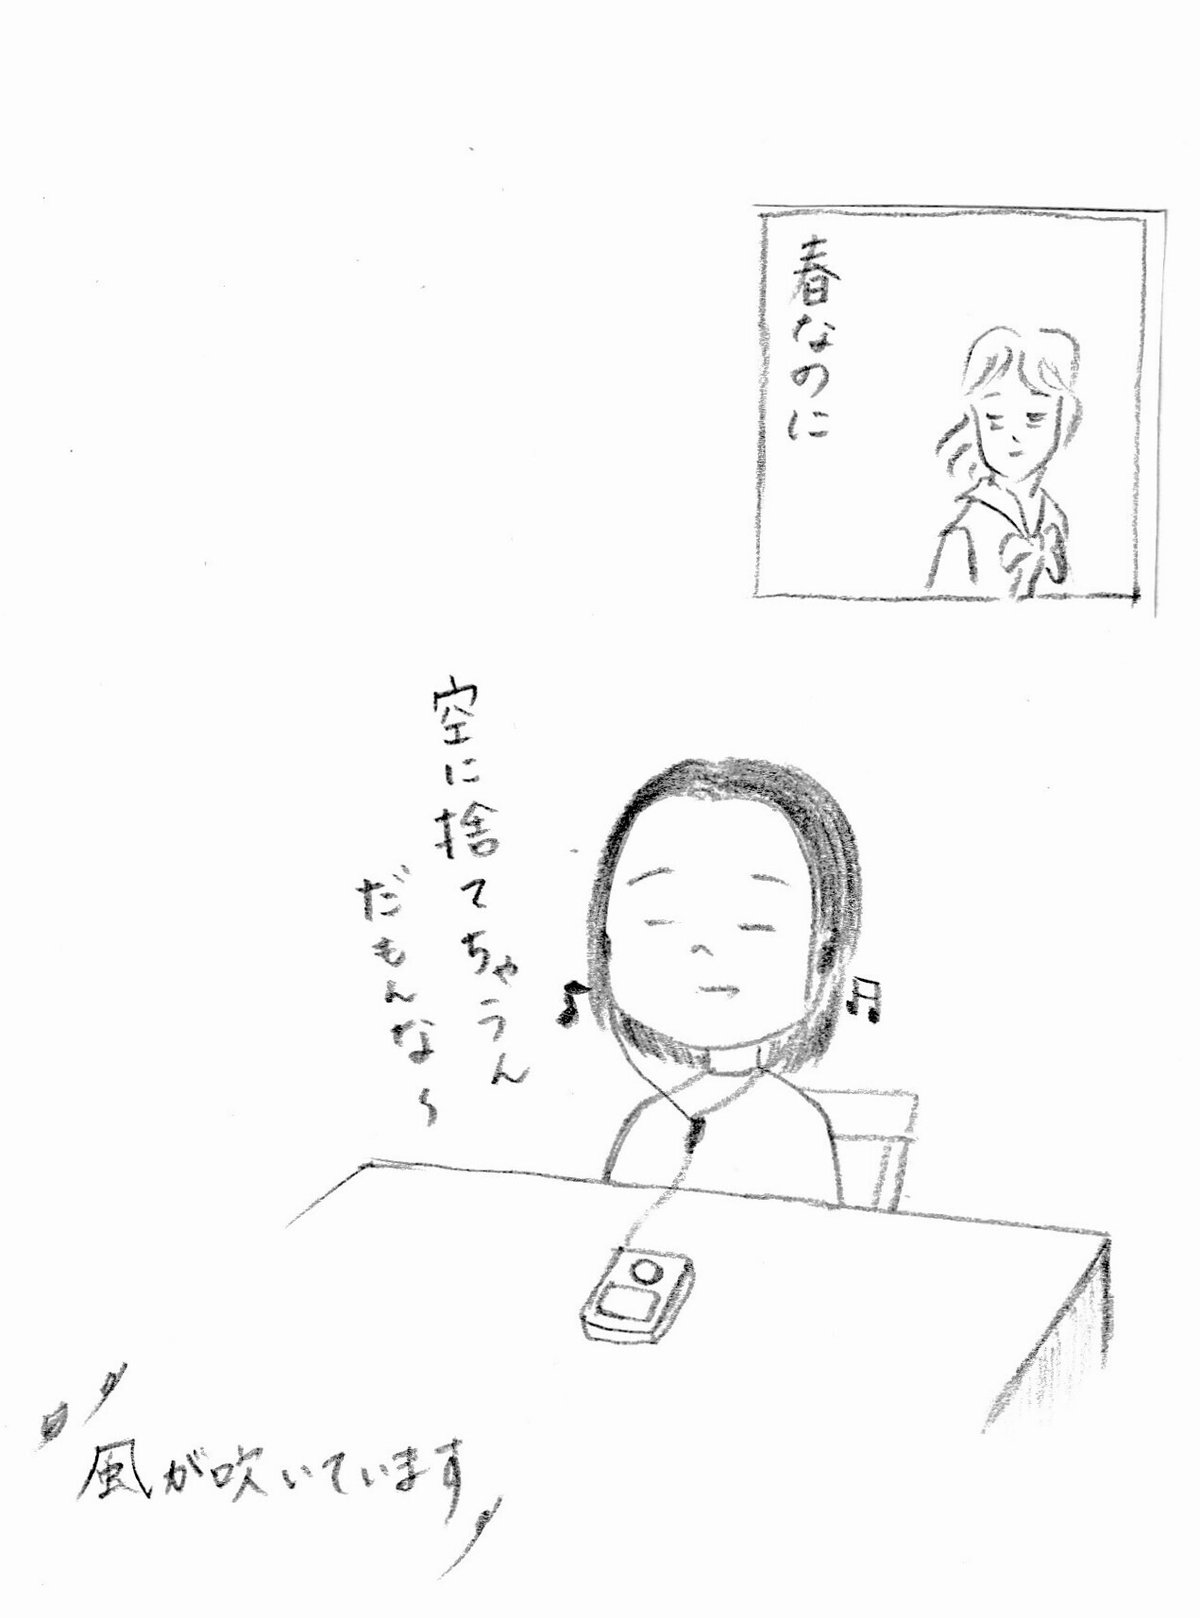 春なのに
空に捨てちゃうん
だもんな〜
風が吹いています